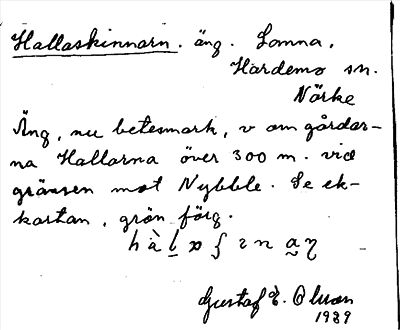 Hallaskinnarn. äng. Lomna.
Hardemo sn.
Närke
Äng, nu betesmark, v om gårdar-
na Hallarna över 300 m. vid
gränsen mot Nybble. Se ek-
kartan, grön färg.
Gustaf E. Olsson
1939